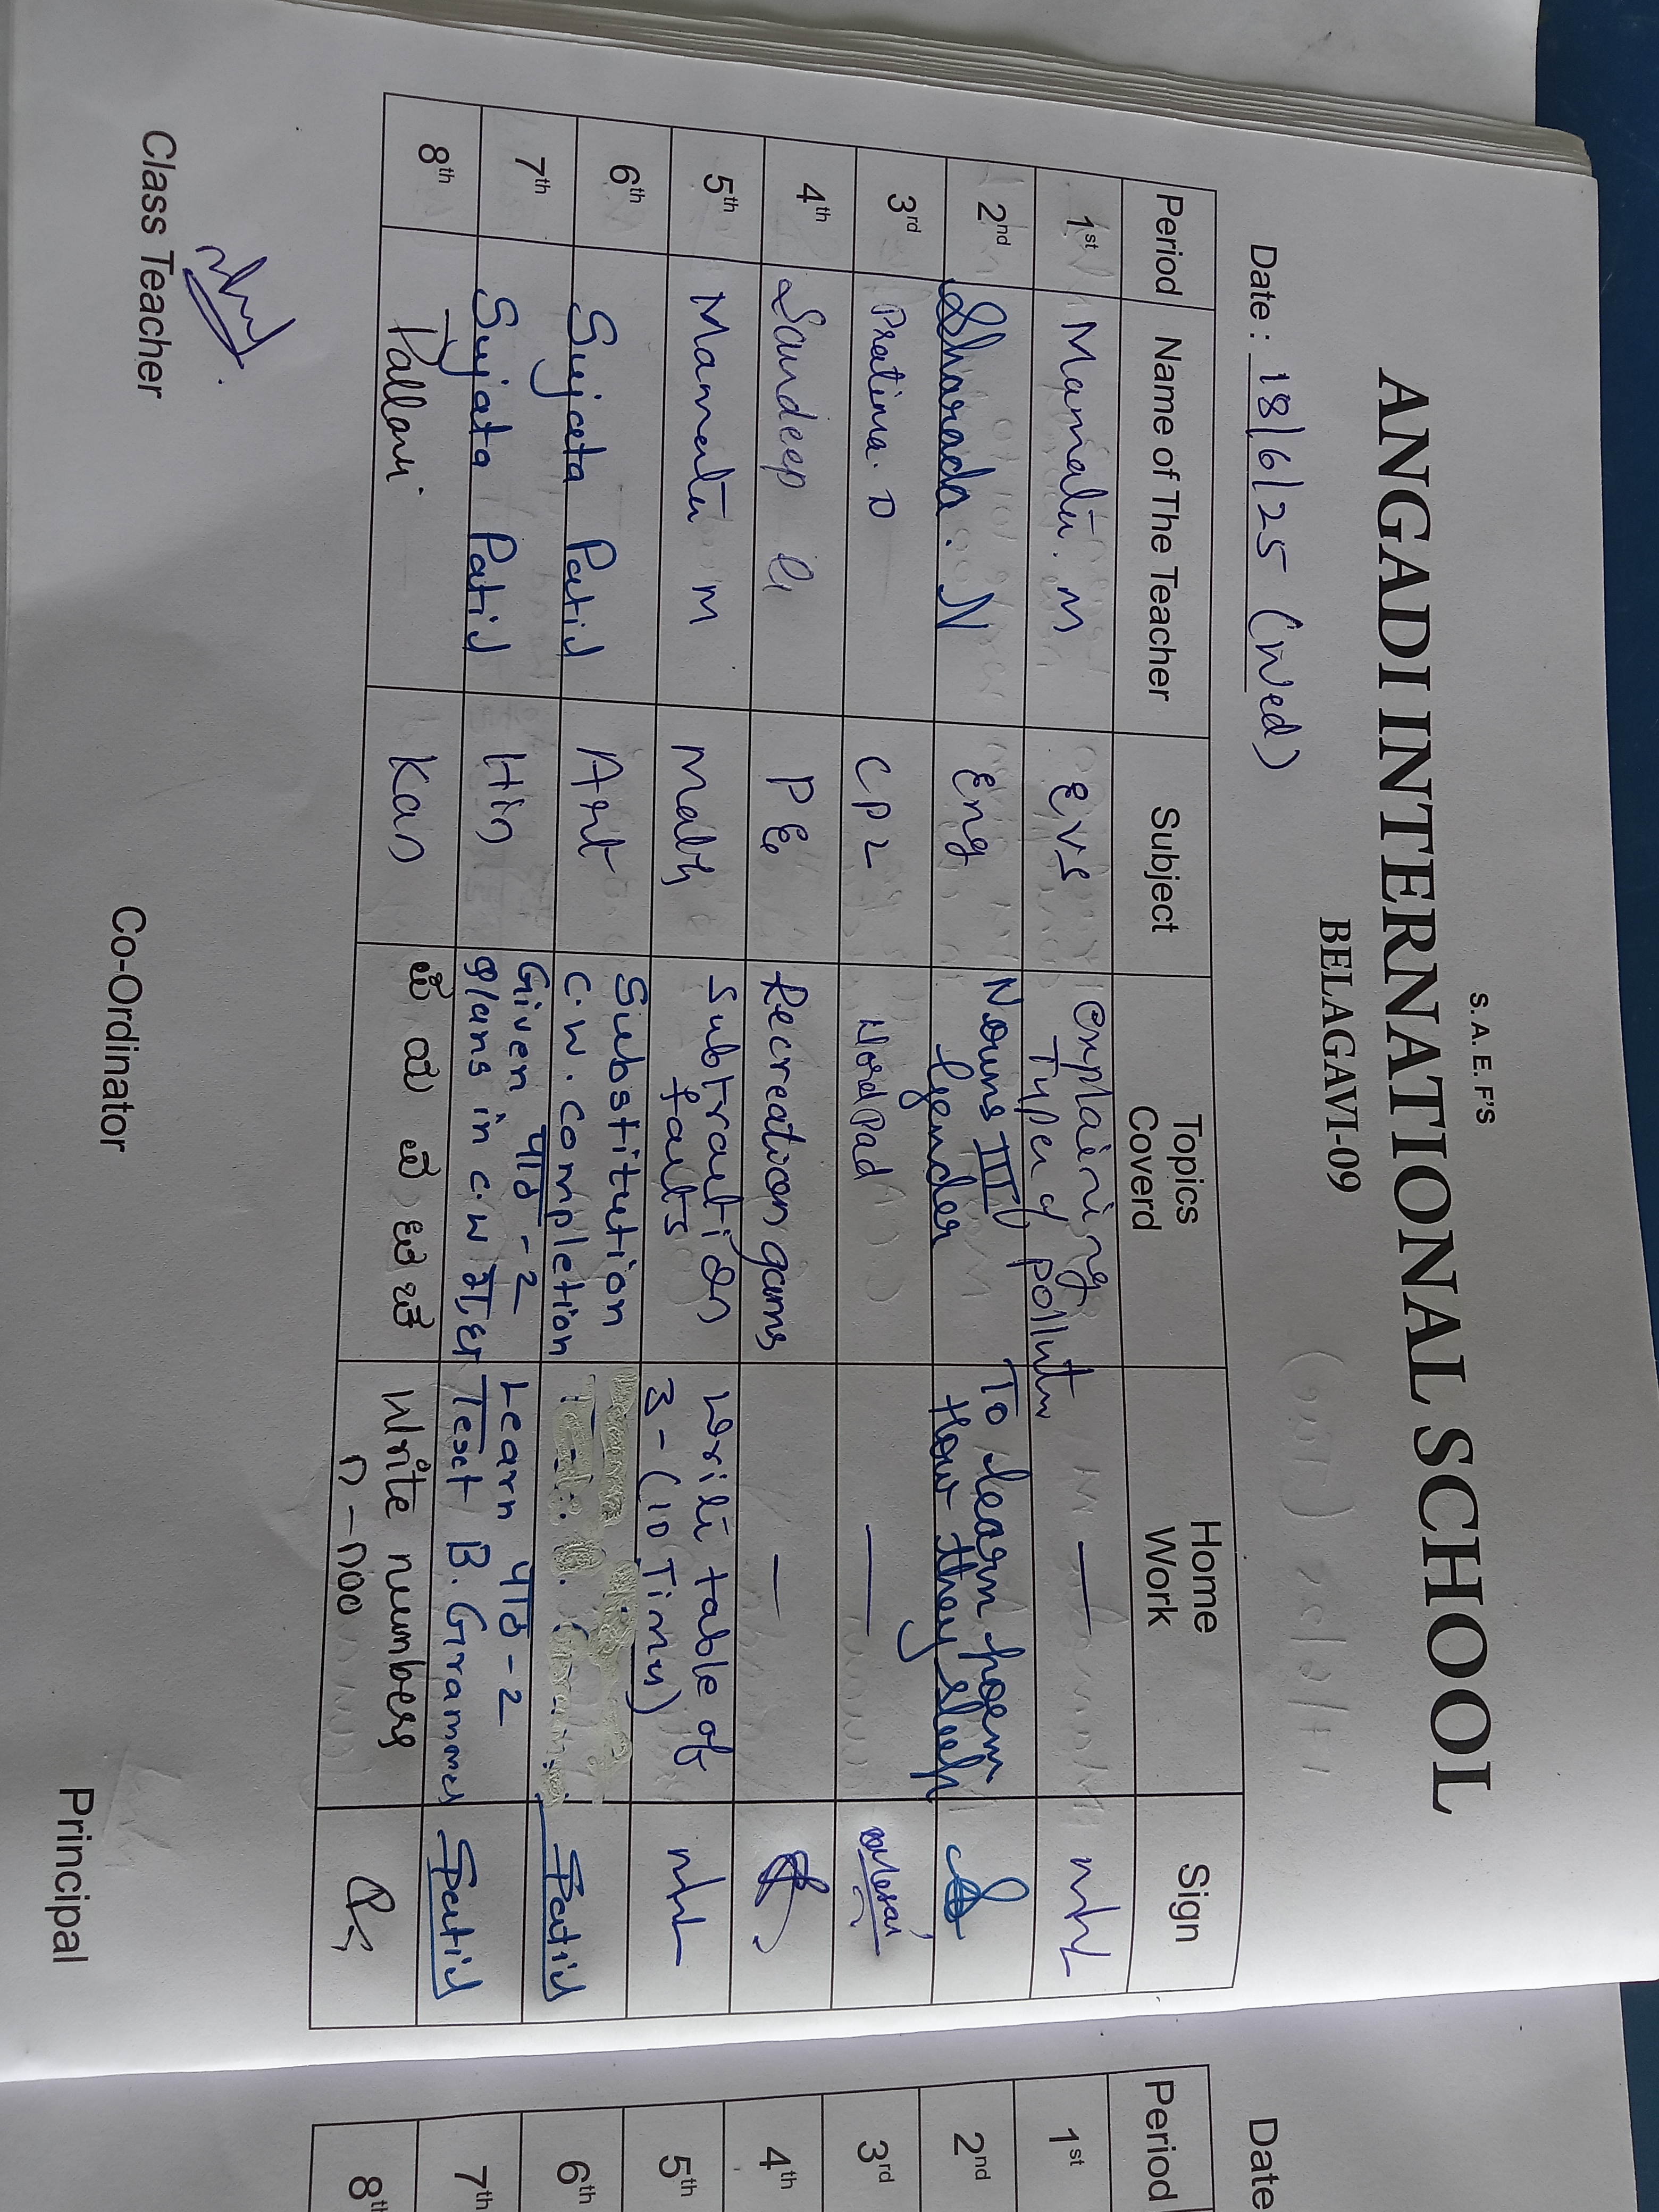 S. A. E. F'S
ANGADI INTERNATIONAL SCHOOL
BELAGAVI-09
Date : 18/6/25 (Wed)
Period Name of The Teacher Subject Topics Coverd Home Work Sign
1st Mamata. M EVS Explaining Types of pollutn —
2nd Sharada. N Eng Nouns III Gender To learn poem How they sleep
3rd Pratima. D CPL WordPad — Desai
4th Sandeep PE Recreation games —
5th Mamata M Math Subtraction facts Write table of 3 - (10 Times)
6th Sujata Patil Art Substitution C.W. completion SPatil
7th Sujata Patil Hin Given पाठ - 2 in C.W Learn पाठ - 2 Test B. Grammer SPatil
8th Pallavi Kan Write numbers ೧ - ೧೦೦
Class Teacher Co-Ordinator Principal
Date
Period
1st
2nd
3rd
4th
5th
6th
7th
8th